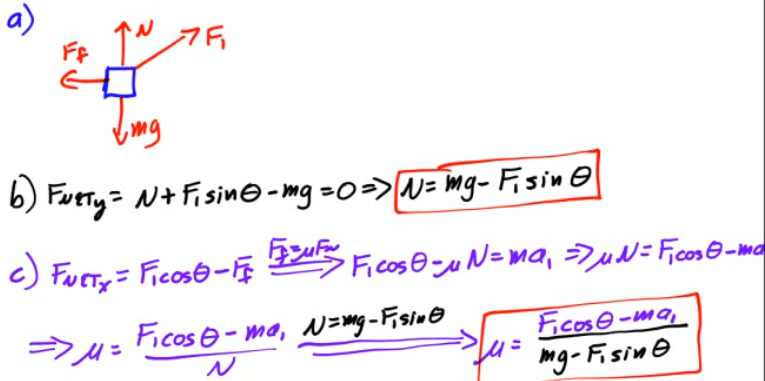 a)
N
F₁
F_f
mg
b) F_NETy = N + F₁ sin θ - mg = 0 => N = mg - F₁ sin θ
c) F_NETx = F₁cos θ - F_f F_f=μF_N => F₁cos θ - μN = ma₁ => μN = F₁cos θ - ma
=> μ = (F₁cos θ - ma₁)/N N=mg-F₁sin θ => μ = (F₁cos θ - ma₁)/(mg - F₁ sin θ)